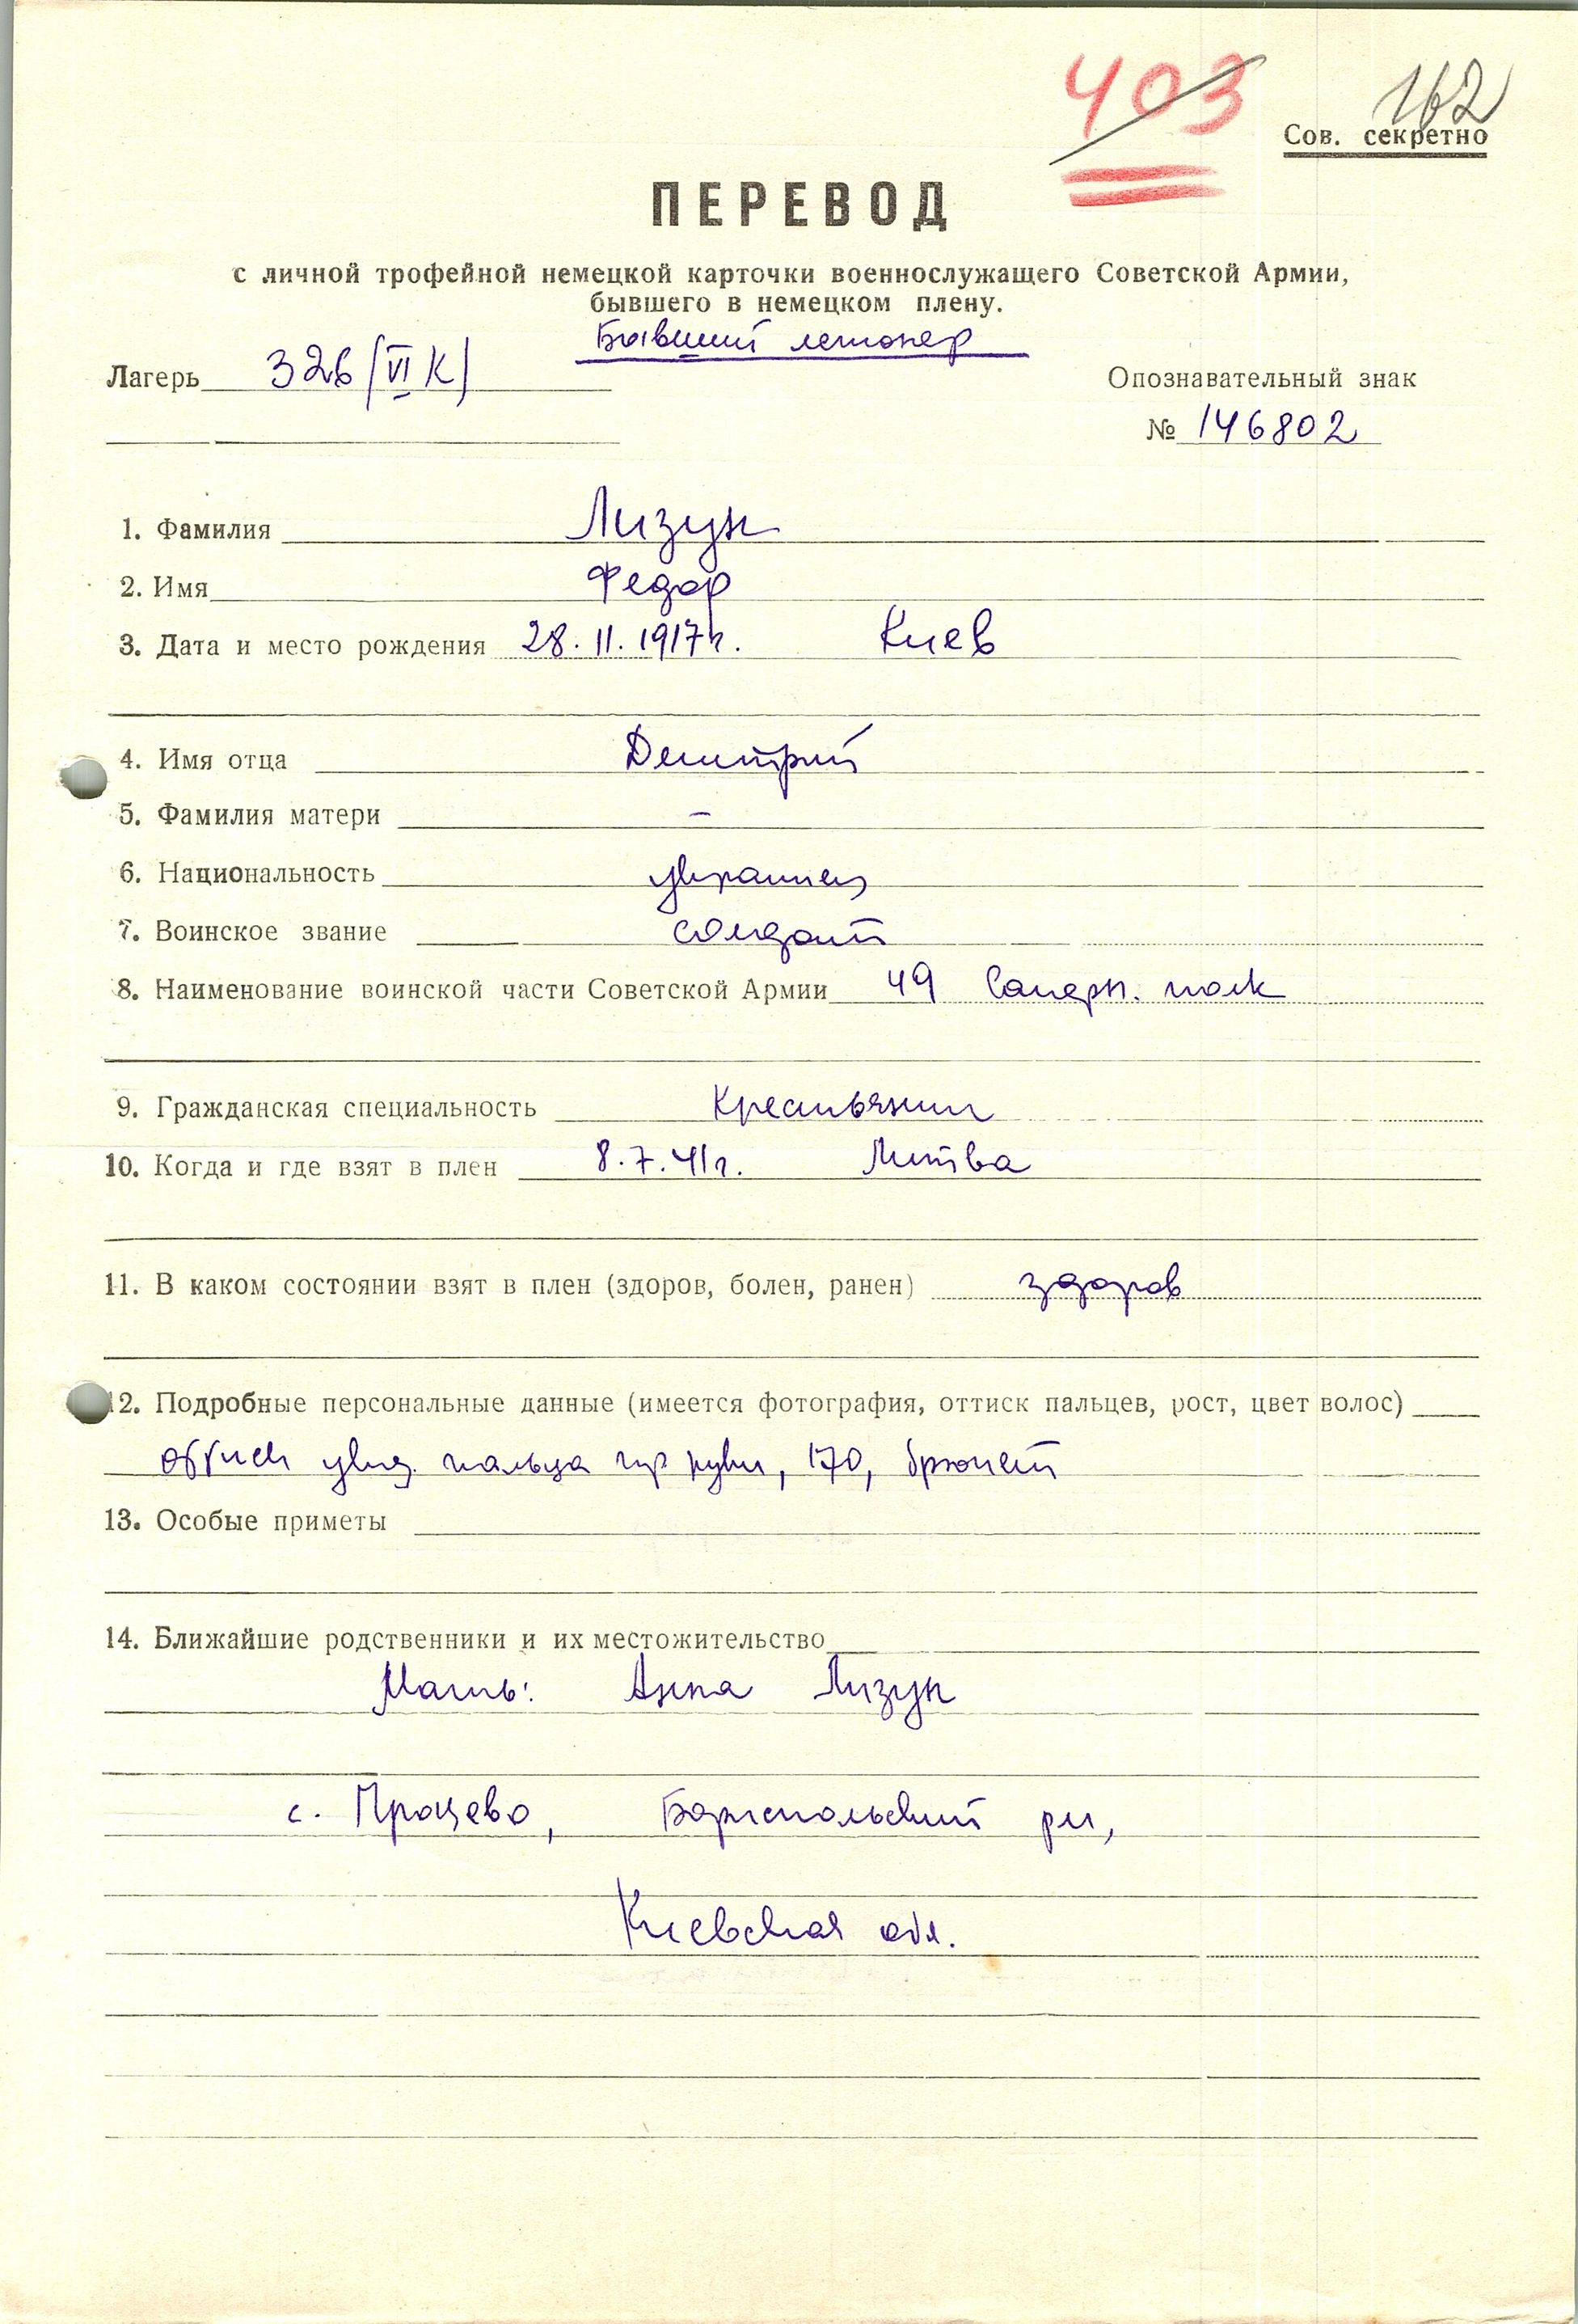 403 162
Сов. секретно
ПЕРЕВОД
с личной трофейной немецкой карточки военнослужащего Советской Армии,
бывшего в немецком плену.
Бывший легионер
Лагерь 326 (VI К)
Опознавательный знак
№ 146802
1. Фамилия Лизун
2. Имя Федор
3. Дата и место рождения 28.11.1917г. Киев
4. Имя отца Дмитрий
5. Фамилия матери –
6. Национальность украинец
7. Воинское звание солдат
8. Наименование воинской части Советской Армии 49 Саперн. полк
9. Гражданская специальность Крестьянин
10. Когда и где взят в плен 8.7.41г. Литва
11. В каком состоянии взят в плен (здоров, болен, ранен) здоров
12. Подробные персональные данные (имеется фотография, оттиск пальцев, рост, цвет волос)
оттиск указ. пальца пр руки, 170, брюнет
13. Особые приметы
14. Ближайшие родственники и их местожительство
Мать: Анна Лизун
с. Процево, Бориспольский рн,
Киевская обл.